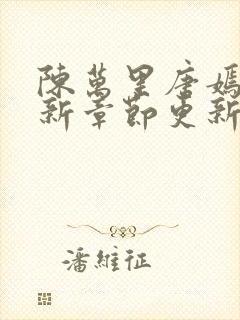 陳萬里唐嫣
新章節更新
潘維征